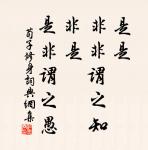 是是
非非謂之知
非是
是非謂之愚
荀子修身詞典網集